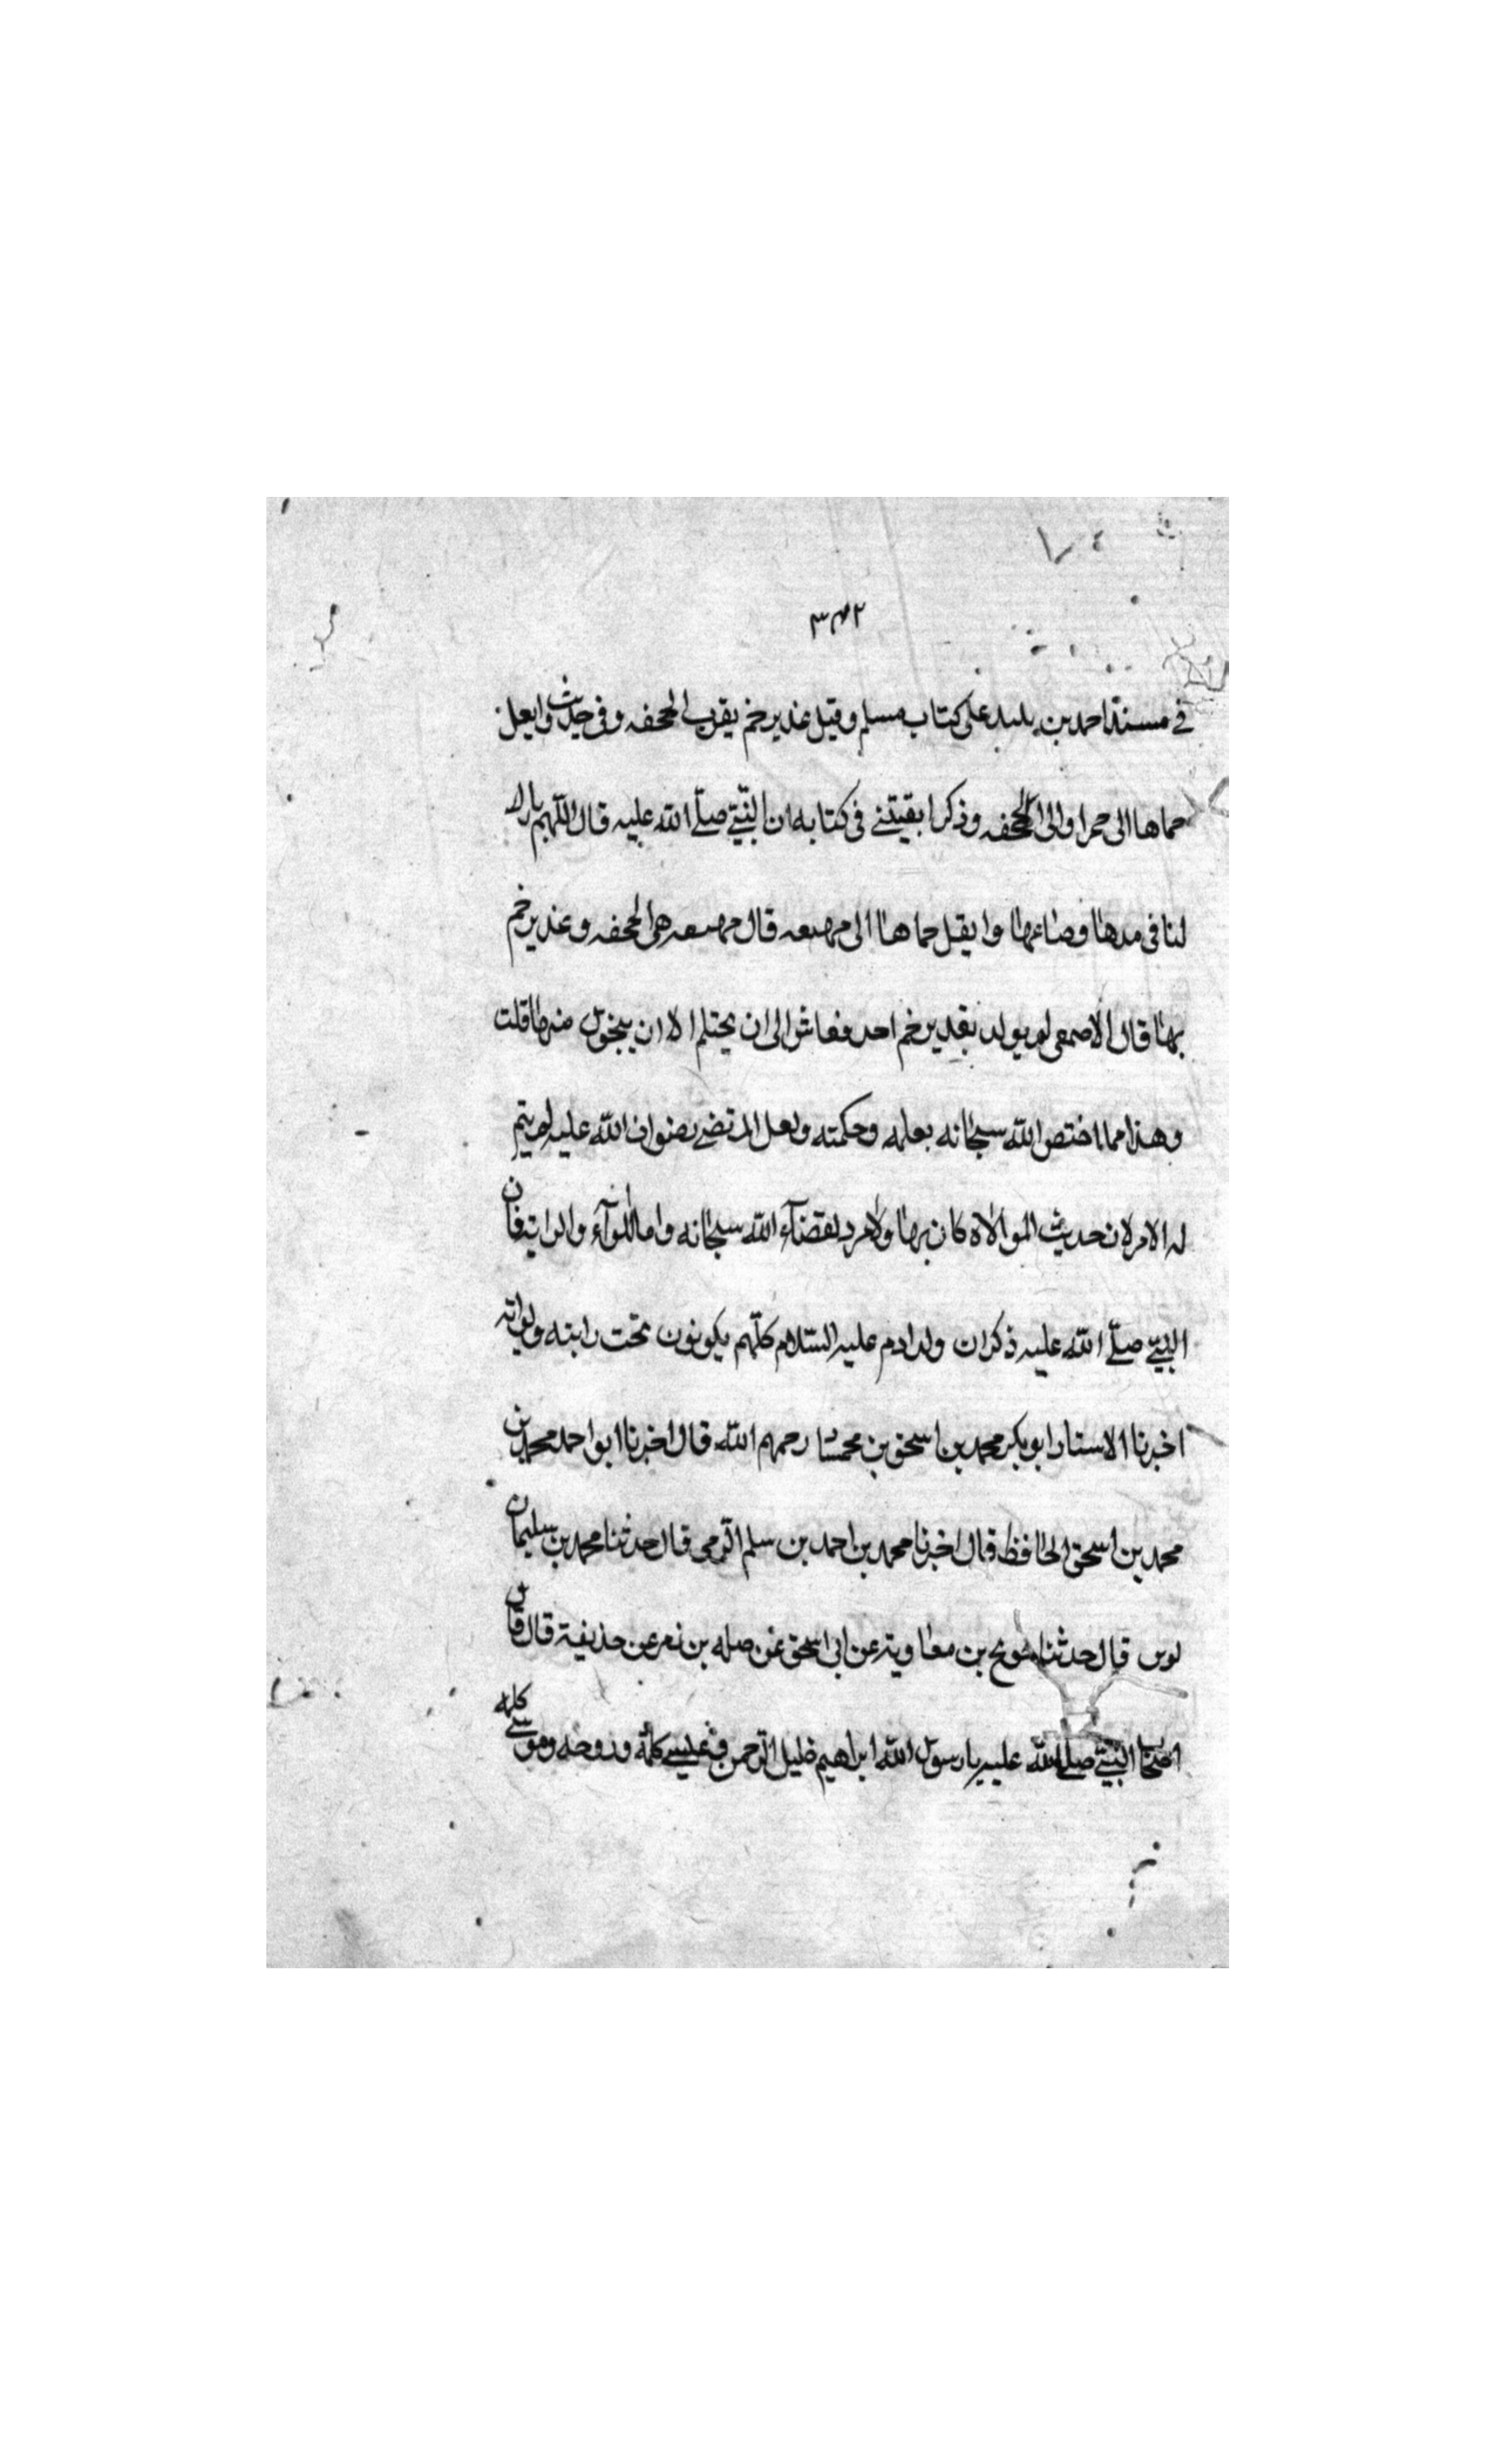 ٣٤٢
في مسند احمد بن على كتاب مسلم وقيل غدير خم يقرب الجحفه وفى حديث وابعل
حماها الى حمرا والى الجحفه وذكرا بقيتنے فى كتابه ان النبيّ صلّے الله عليه قال اللّهم بارك
لنا فى مدها وصاعها وا يقبل حماها الى مهيعه قال مهيعه هى الجحفه وغدير خم
بها قال الاصمعى لم يولد بغدير خم احد فعاش الى ان يحتلم الا ان يتحول منها قلت
وهذا مما اختص الله سبحانه بعلمه وحكمته ولعل المرتضے رضوان الله عليه لم يتم
له الامر لان حديث الموالاة كان بها ولا مرد لقضآء الله سبحانه واما اللوآء والراية فان
النبيّ صلّے الله عليه ذكر ان ولد ادم عليه السّلام كلّهم يكونون تحت رايته ولوائه
اخبرنا الاستاد ابو بكر محمد بن اسحق بن محمشاد رحمهم الله قال اخبرنا ابو احمد محمد بن
محمد بن اسحق الحافظ قال اخبرنا محمد بن احمد بن سلم الرّمى قال حدثنا محمد بن سليمان
لوين قال حدثنا حديج بن معاوية عن ابى اسحق عن صله بن زفر عن حذيفة قال قال
اصحاب النبيّ صلے الله عليه يا رسول الله ابراهيم خليل الرّحمن وعيسے كلمة وروحه وموسے كلمه